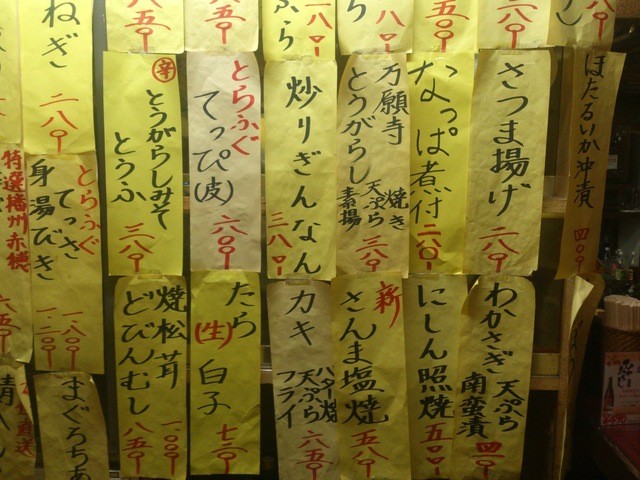 二八〇
五〇〇
八〇
一八〇
八五〇
ほたるいか沖漬
四〇〇
さつま揚げ
二八〇
なっぱ煮付
二八〇
万願寺
とうがらし
焼き
天ぷら
素揚
三八〇
炒りぎんなん
三八〇
とらふぐ
てっぴ(皮)
六〇〇
辛
とうがらしみそ
とうふ
三八〇
ねぎ
二八〇
わかさぎ
天ぷら
南蛮漬
四〇〇
にしん照焼
五〇〇
新
さんま塩焼
五八〇
カキ
バター焼
天ぷら
フライ
六五〇
たら
(生)
白子
七三〇
焼松茸
一〇〇〇
どびんむし
八五〇
とらふぐ
てっさ
一八〇〇
身湯びき
一二〇〇
特選播州赤穂
まぐろ